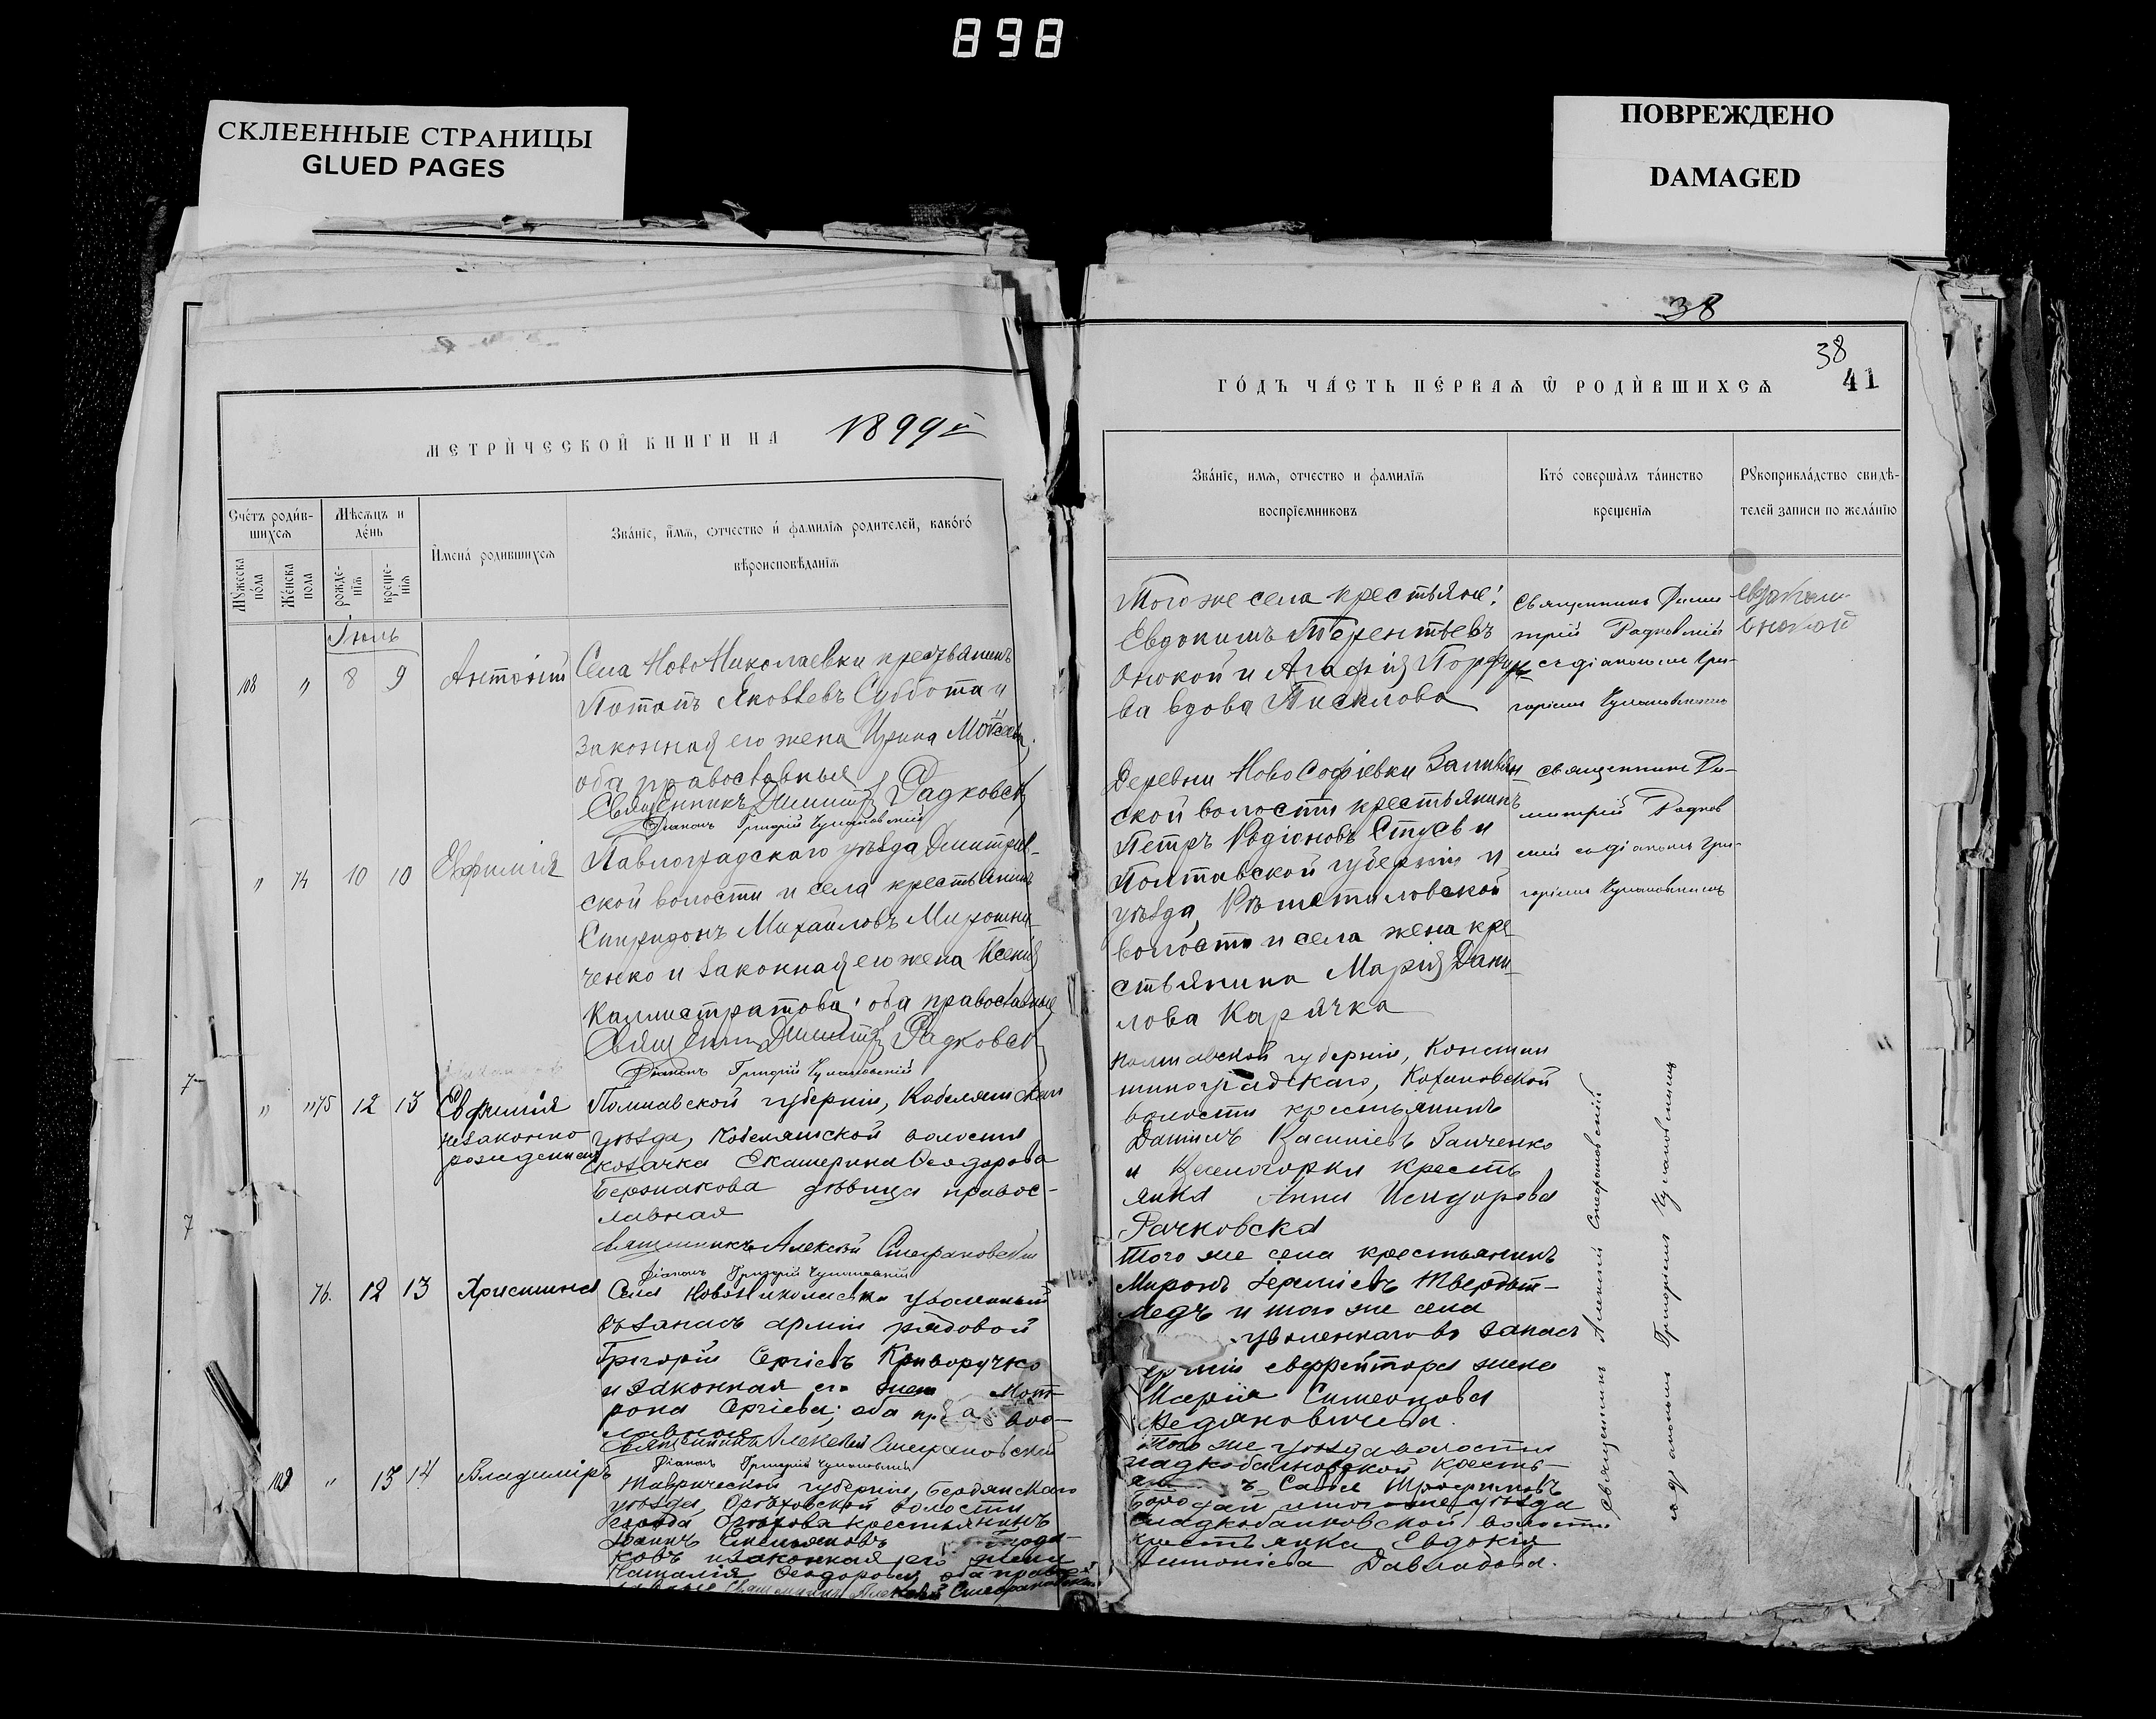 898
СКЛЕЕННЫЕ СТРАНИЦЫ
GLUED PAGES
ПОВРЕЖДЕНО
DAMAGED
МЕТРИ́ЧЕСКОЙ КНИГИ НА 1899й
Сче́тъ роди́в-
шихсѧ
Мѣсѧцъ и
де́нь
Му́жеска
по́ла
Же́нска
пола
рожде-
нїѧ
креще-
нїѧ
И҆мена́ родившихсѧ
Зва́нїе, и҆́мѧ, ѻтчество и҆ фамилїѧ родителей, како́гѡ
вѣроисповѣданїѧ
Іюль
108 " 8 9 Антоній
Села НовоНиколаевки крестьянинъ
Потапъ Яковлевъ Суббота и
законная его жена Ирина Моисеева,
оба православныя
Священникъ Димитрій Радковскій
Діаконъ Григорій Чулановскій
" 74 10 10 Евфимія
Павлоградскаго уѣзда Дмитріев-
ской волости и села крестьянинъ
Спиридонъ Михайловъ Мирошни-
ченко и законная его жена Ксенія
Каллистратова; оба православные
Священникъ Димитрій Радковскій
Діаконъ Григорій Чулановскій
7
" "75 12 13 Евфимія
незаконно
рожденная
Полтавской губерніи, Кобелякскаго
уѣзда, Кобелякской волости
козачка Екатерина Ѳеодорова
дѣвица правос-
лавная
Священникъ Алексѣй Стефановскій
Діаконъ Григорій Чулановскій
7
76. 12 13 Христина
Села НовоНиколаевки уволенный
въ запасъ арміи рядовой
Григорій Сергіевъ Криворучко
и законная его жена Мот-
рона Сергіева; оба правос-
лавные
Священникъ Алексѣй Стефановскій
Діаконъ Григорій Чулановскій
109 " 13 14 Владиміръ
Таврической губерніи, Бердянскаго
уѣзда, Орѣховской волости
города Орѣхова крестьянинъ
Іоаннъ Емельяновъ
ковъ и законная его жена
Наталія Ѳеодорова, оба правос-
Священникъ Алексѣй Стефановскій
38
38
41
ГО́ДЪ ЧА́СТЬ ПЕ́РВАѦ Ѡ҆ РОДИ́ВШИХСѦ
Зва́нїе, имѧ, отчество и фамилїѧ
воспрїемниковъ
Кто́ совершалъ та́инство
крещенїѧ
Рукоприкла́дство свидѣ-
телей записи по жела́нїю
Того же села крестьяне:
Евдокимъ Терентьевъ
и Агафія Порфирье-
ва вдова Писклова
Священникъ Дими-
трій Радковскій
съ діакономъ Гри-
горіемъ Чулановскимъ
Деревни НовоСофіевки
ской волости крестьянинъ
Петръ Родіоновъ Стусь и
Полтавской губерніи и
уѣзда, Рѣшетиловской
волости и села жена кре-
стьянина Марія Дани-
лова Карячка
Священникъ Ди-
митрій Радков
скій съ діакономъ Гри-
горіемъ Чулановскимъ
Полтавской губерніи, Констан
тиноградскаго,
волости крестьянинъ
Даніилъ
и кресть
янка Анна Исидорова
Рачковска
Того же села крестьянинъ
Миронъ Іереміевъ Твердох-
лѣдъ и того же села
уволеннаго въ запасъ
арміи ефрейтора жена
Марія Симеонова
Того же уѣзда волости
кресть-
Савва Трофимовъ
и того же уѣзда
волости
крестьянка Евдокія
Антоніева Давыдова.
Священникъ Алексій Стефановскій
съ діакономъ Григоріемъ Чулановскимъ